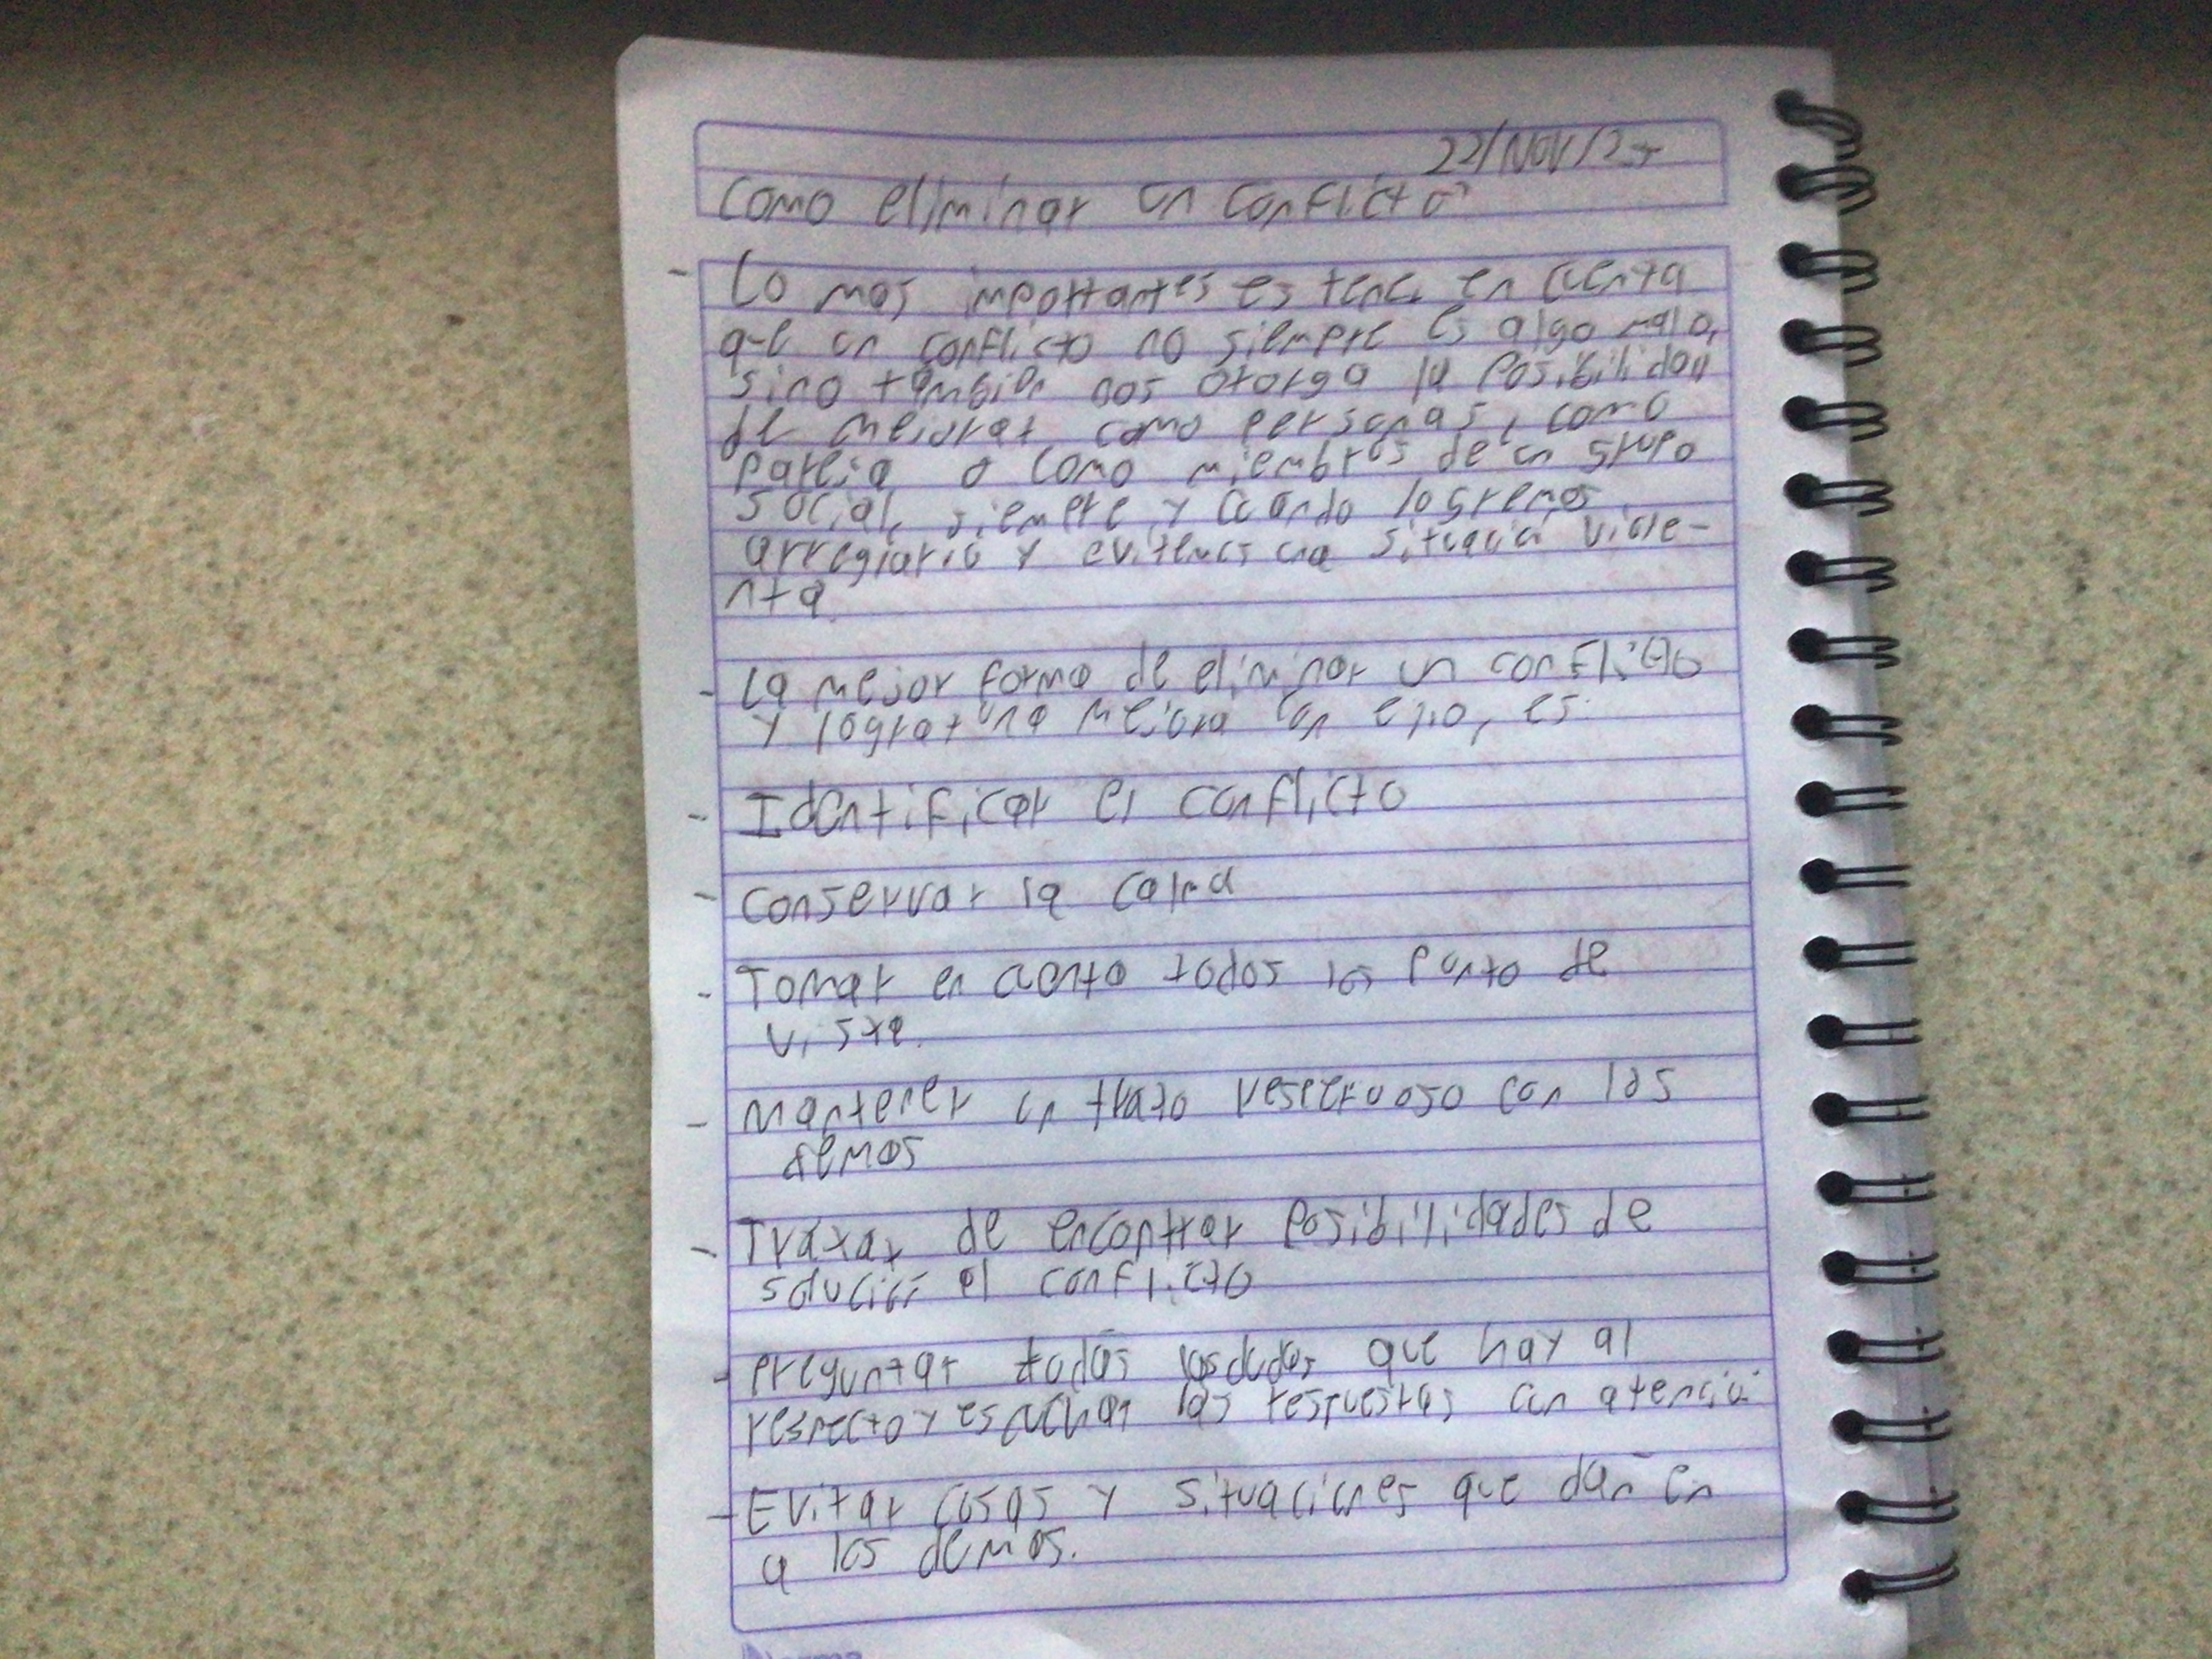 22/NOV/2
como eliminar un conflicto?
- Lo mas importantes es tener en cuenta
que un conflicto no siempre es algo malo,
sino tambien nos otorga la posibilidad
de mejorar como personas, como
pareja o como miembros de un grupo
social, siempre y cuando logremos
arreglarlo y evitemos una situació viole-
nta
- La mejor forma de eliminar un conflicto
y lograr una mejora con ello, es:
- Identificar el conflicto
- conservar la calma
- Tomar en cuenta todos los punto de
vista.
- Mantener un trato respetuoso con los
demas
- Tratar de encontrar posibilidades de
solució al conflicto
- preguntar todas las dudas que hay al
respecto y escuchar las respuestas con atenció
- Evitar cosas y situaciones que dañen
a los demas.